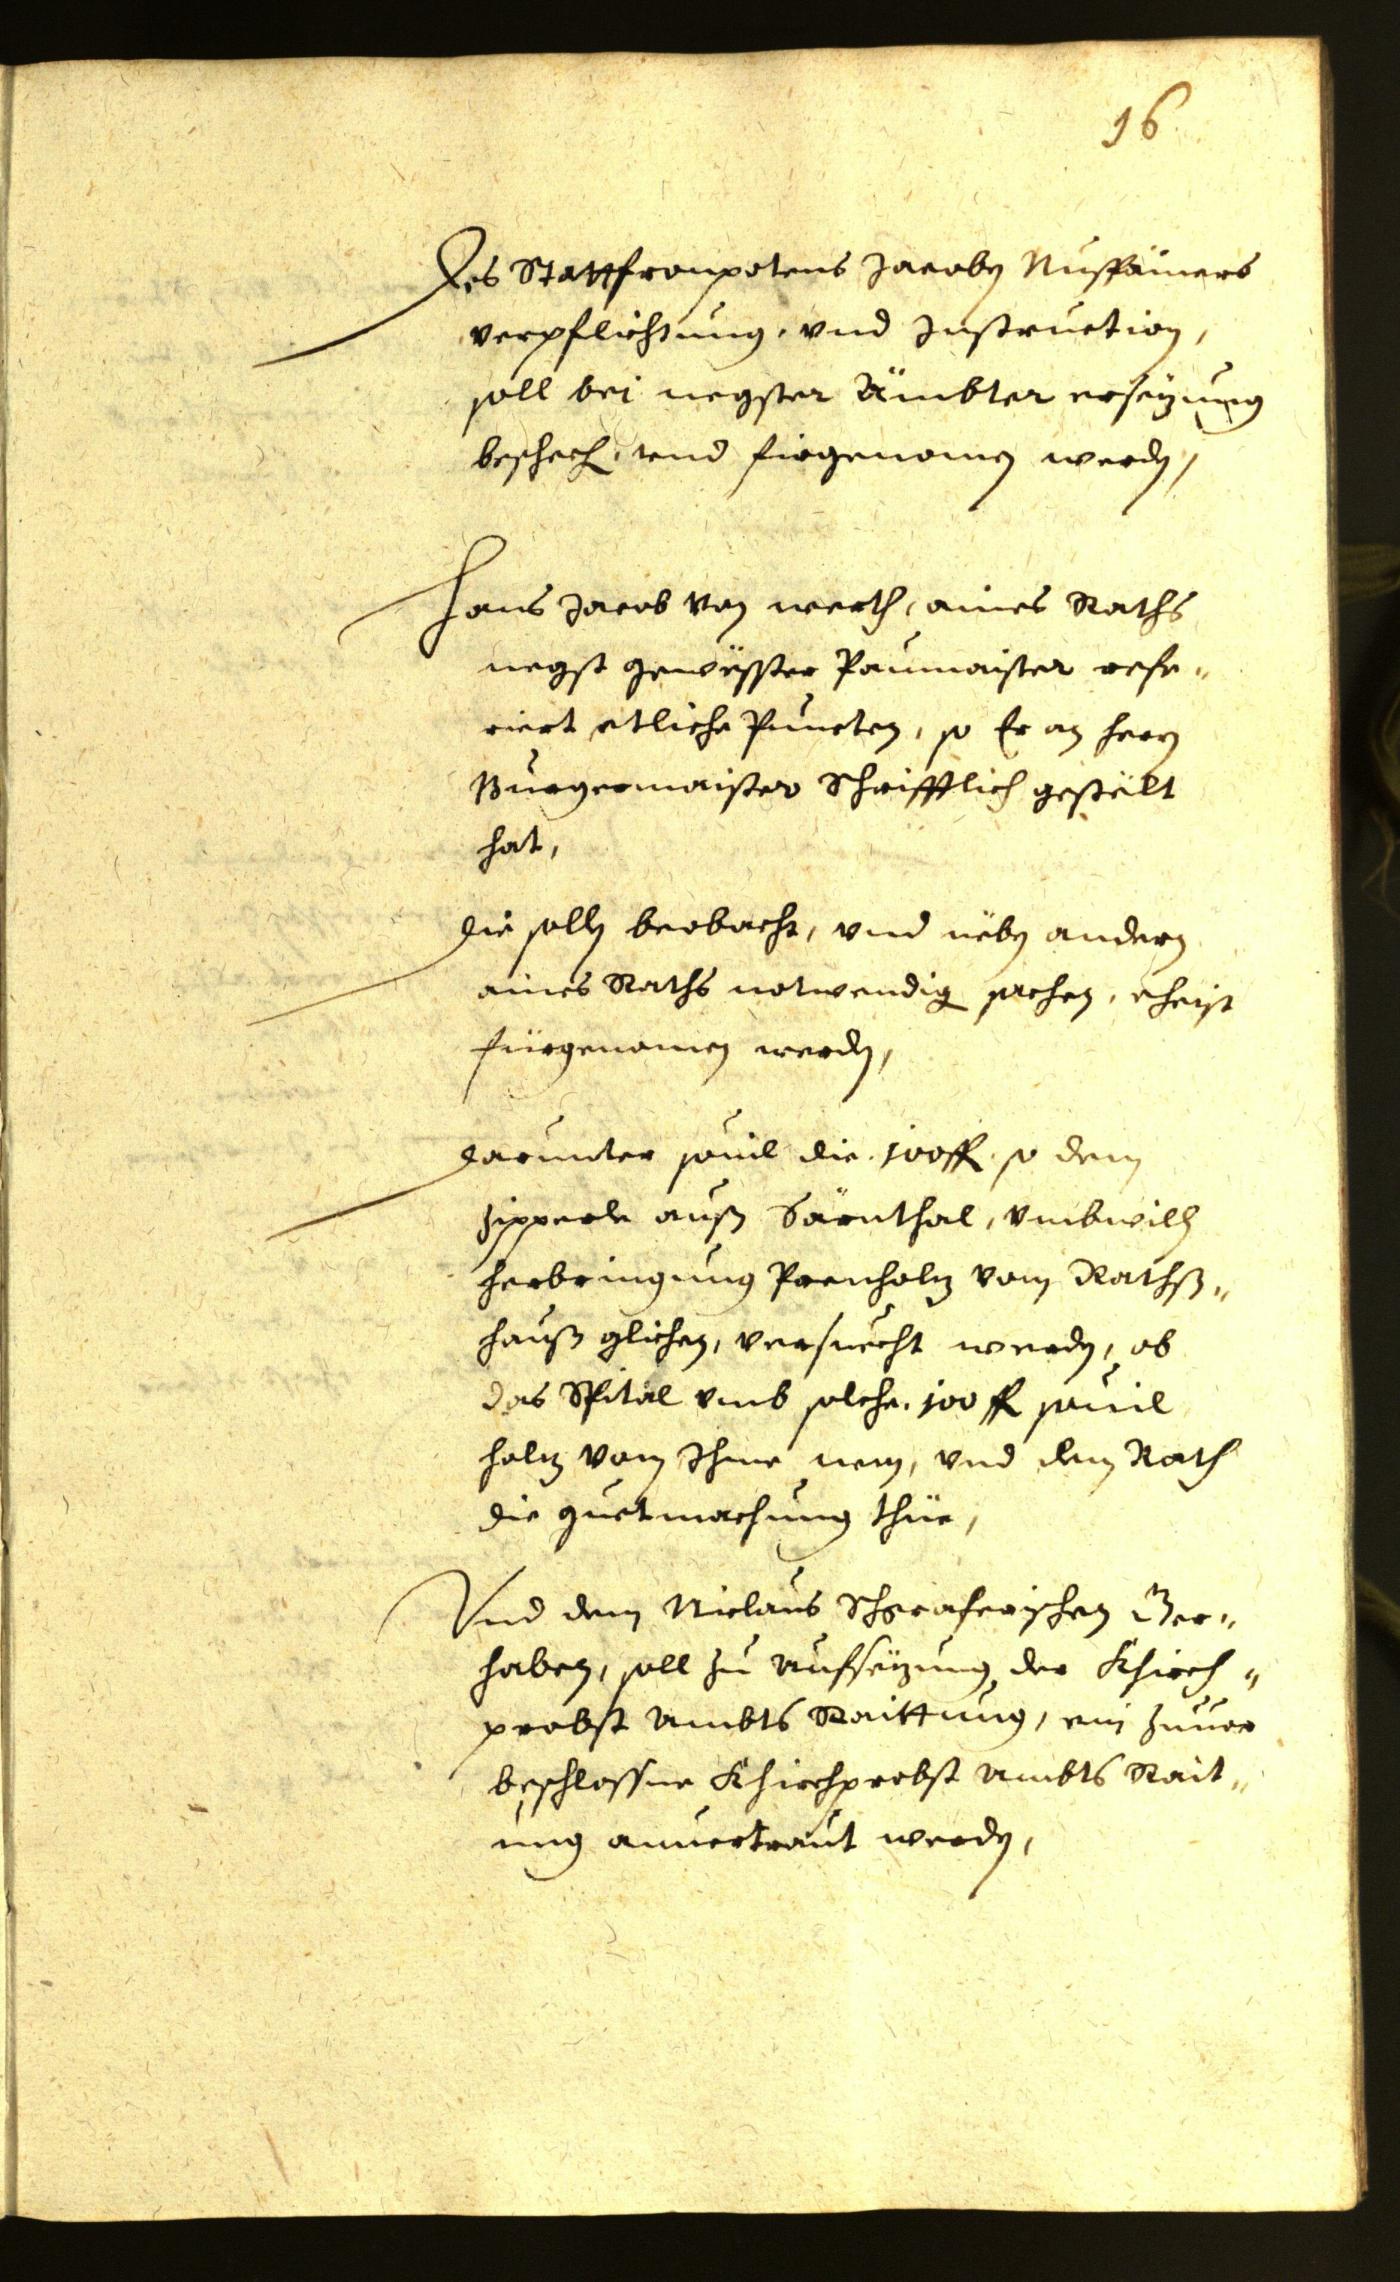 16
Des Stattfronpotens Jacoben Nussämers
verpflichtung, vnd Instruction,
soll bei negster Ämbter ersezung
beschech, vnd fürgenomen werden,
Hans Jacob von werth, aines Raths
negst gewësster Paumaister refe„
riert etliche Puncten, so Er an herrn
Burgermaister Schrifftlich gestëlt
hat,
die sollen beobacht, vnd nëben andern
aines Raths notwendig sachen, eheist
fürgenomen werden,
darunter souil die 100 fl so dem
Zipperle auß Särnthal, vmbwillen
herbringung Prenholz vom Rathß„
hauß glichen, versuecht werden, ob
das Spital vmb solche 100 fl souil
holz vom Ihme nem, vnd dem Rath
die guetmachung thüe,
Vnd dem Niclaus Schgraferischen Ger„
haben, soll zu Aufsëzung der Khirch„
probst Ambts Raittung, ein zuuor
beschlossne Khirchprobst Ambts Rait„
ung anuertraut werden,